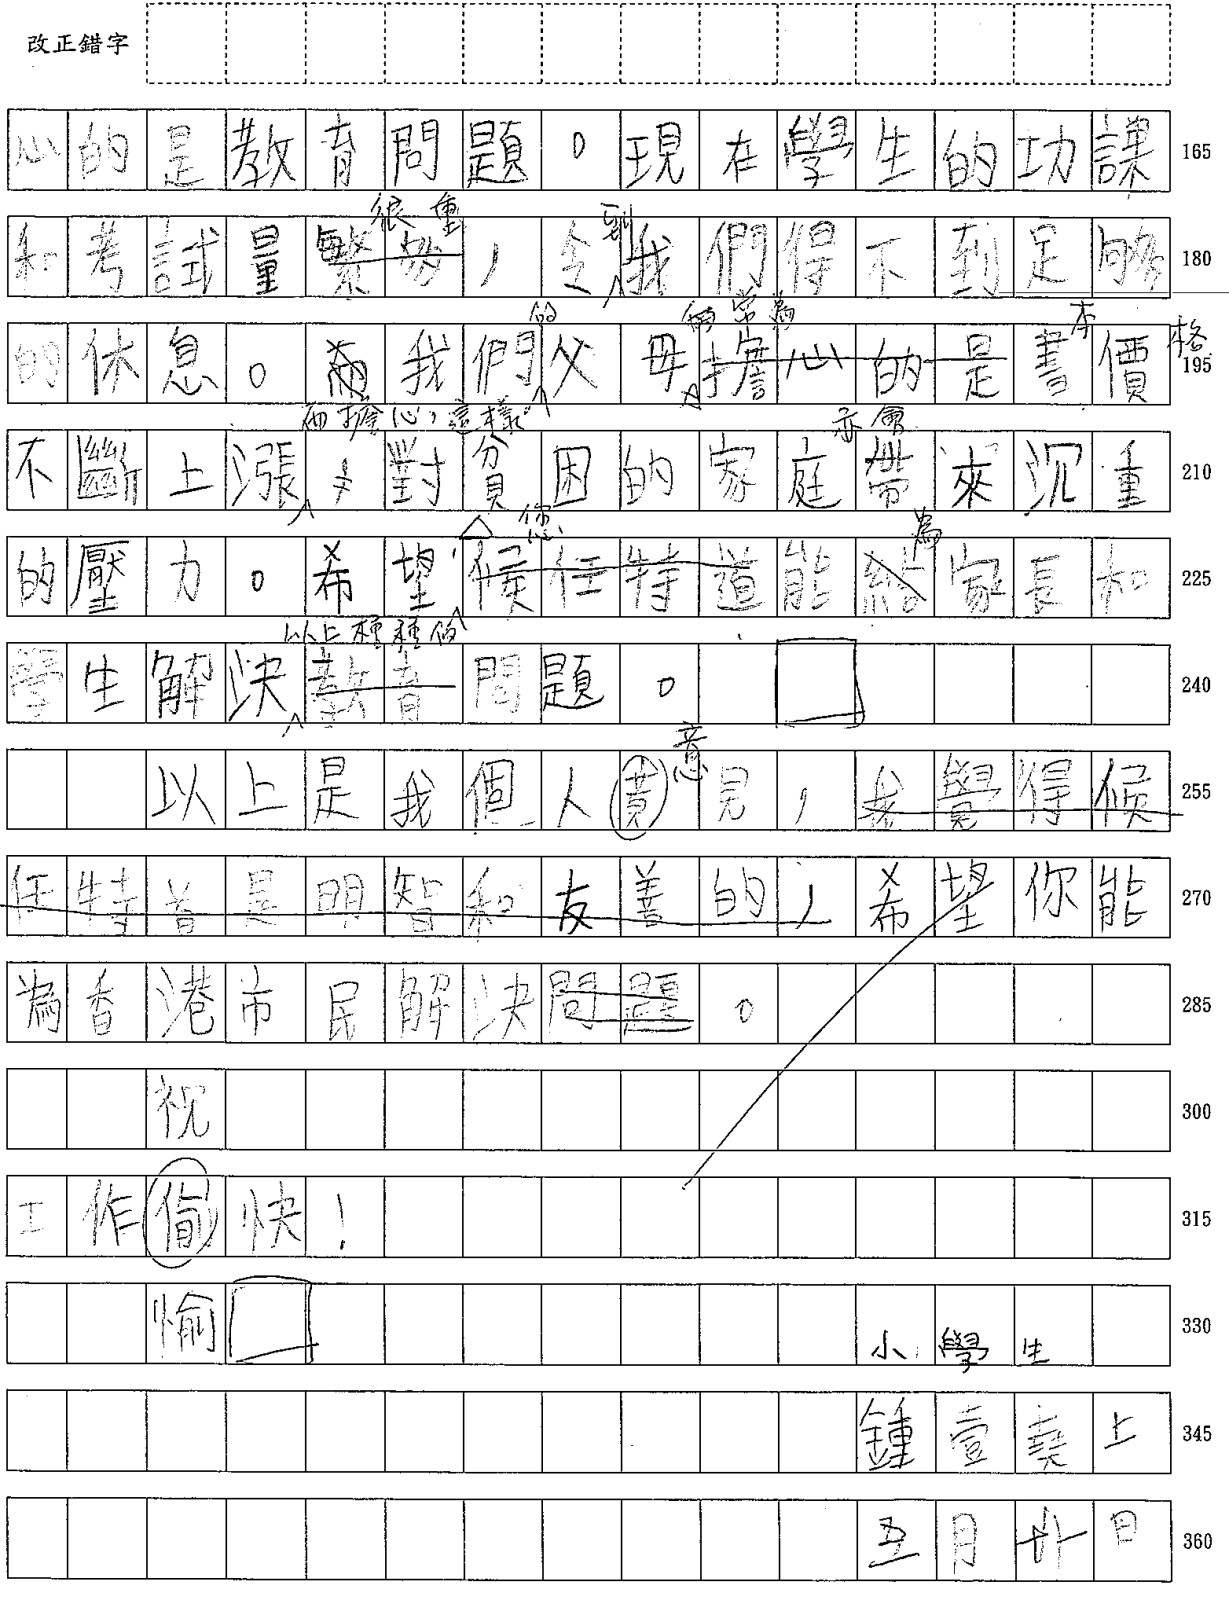 改正錯字
心的是教育問題。現在學生的功課 165
很重 到
和考試量繁多,令我們得不到足夠 180
的 而常為 本 格
的休息。而我們父母擔心的是書價 195
而擔心,這樣 亦會
不斷上漲,對貧困的家庭帶來沉重 210
您 為
的壓力。希望候任特首能給家長和 225
以上種種的
學生解決教育問題。 240
意
以上是我個人見,我覺得候 255
任特首是明智和友善的,希望你能 270
為香港市民解決問題。 285
祝 300
工作快! 315
愉 小學生 330
鍾壹堯上 345
五月廿日 360